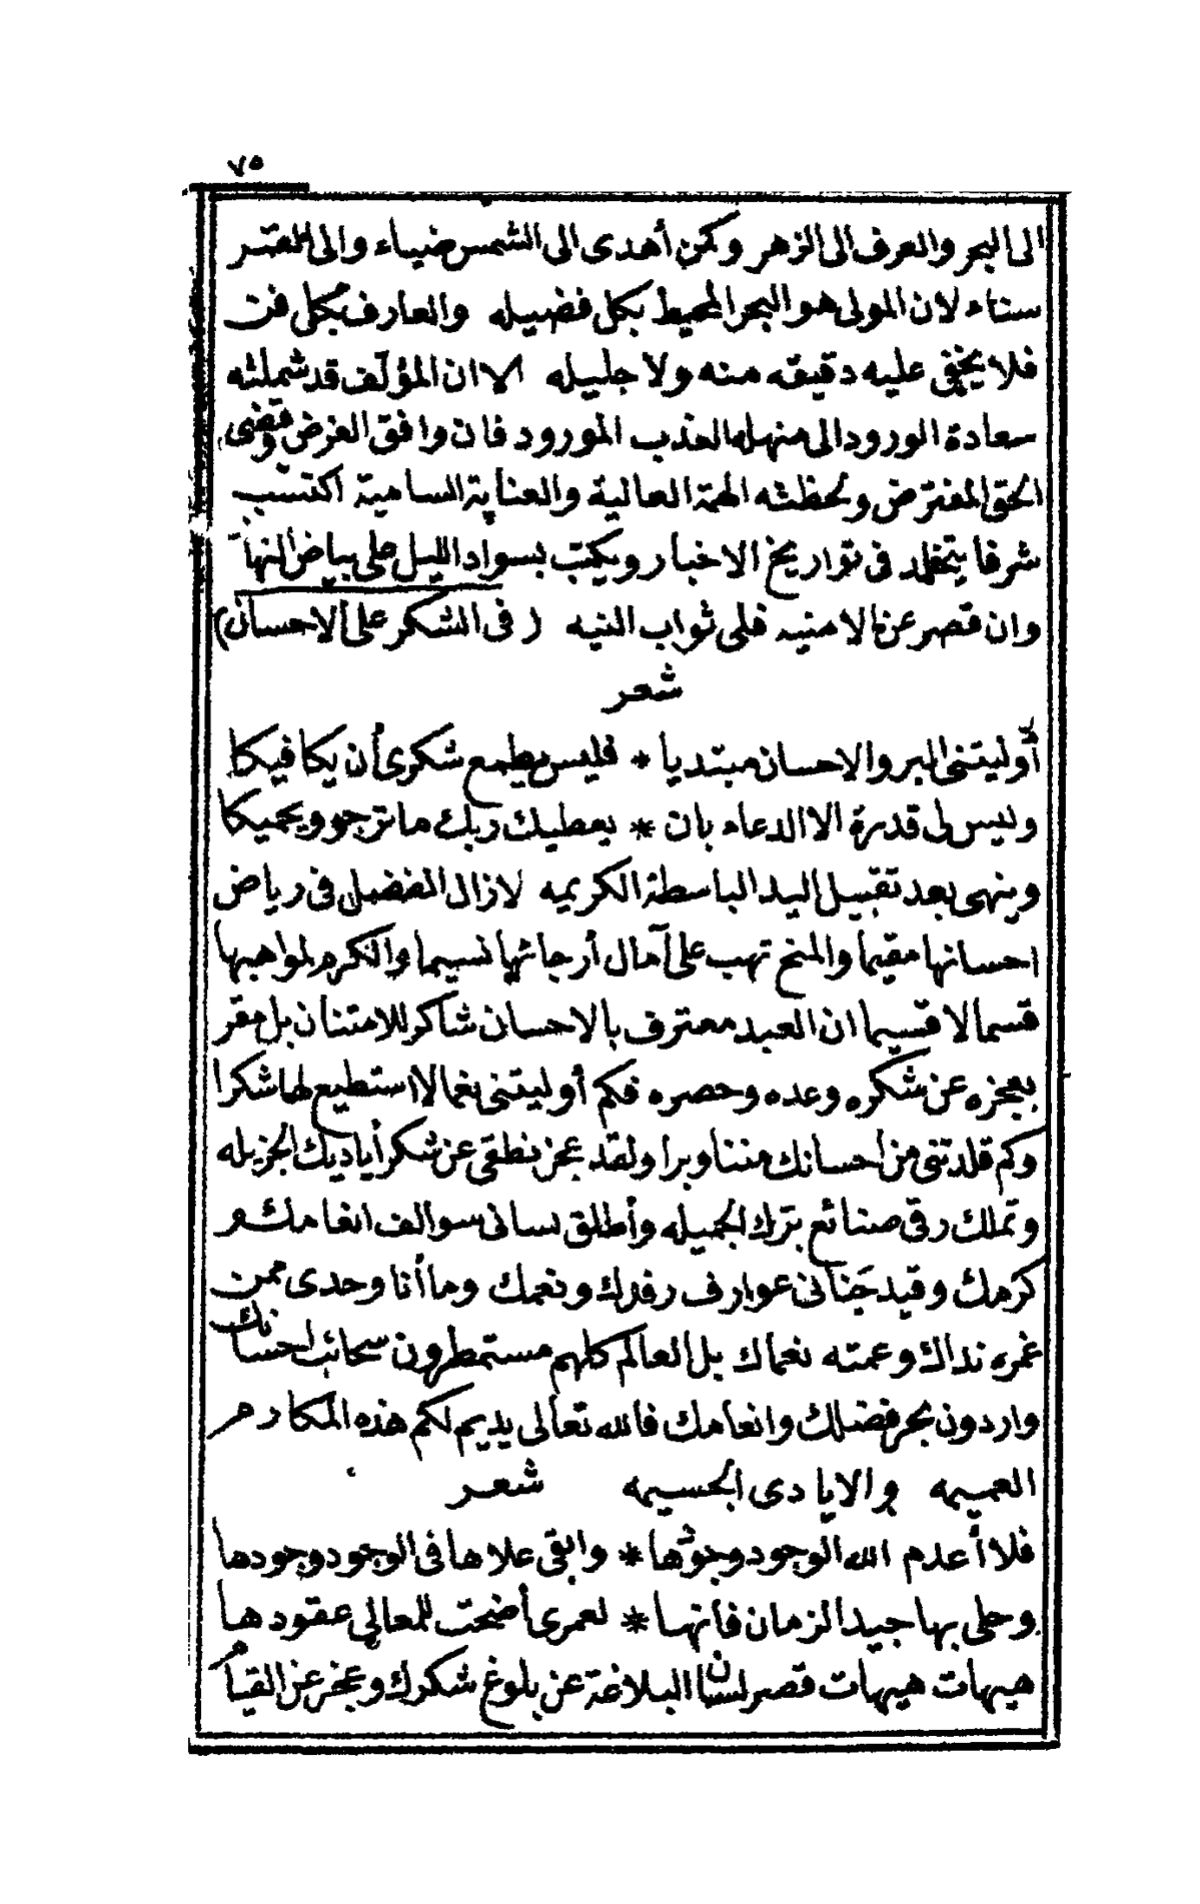 ٧٥
الى البحر والعرف الى الزهر وكمن أهدى الى الشمس ضياء والى القمر
سناء لان المولى هو البحر المحيط بكل فضيله والعارف بكل فن
فلا يخفى عليه دقيقه منه ولا جليله الا ان المؤلف قد شملته
سعادة الورود الى منهله العذب المورود فان وافق الغرض وقضى
الحق المفترض ولحظته الهمة العالية والعناية السامية اكتسب
شرفا يتخلد فى تواريخ الاخبار ويكتب بسواد الليل على بياض النهار
وان قصر عن الامنيه فلى ثواب النيه (فى الشكر على الاحسان)
شعر
أوليتنى البر والاحسان مبتديا * فليس يطمع شكرى أن يكافيكا
وليس لى قدرة الا الدعاء بان * يعطيك ربك ما ترجو ويحميكا
وينهى بعد تقبيل اليد الباسطة الكريمه لازال الفضل فى رياض
احسانها مقيما والمنح تهب على آمال أرجائها نسيما والكرم لمواهبها
قسما لا قسيما ان العبد معترف بالاحسان شاكر للامتنان بل مقر
بعجزه عن شكره وعده وحصره فكم أوليتنى نعما لا استطيع لها شكرا
وكم قلدتنى من احسانك مننا وبرا ولقد عجز نطقى عن شكر أياديك الجزيله
وتملك رقى صنائع بترك الجميله وأطلق لسانى سوالف انعامك و
كرمك وقيد جنانى عوارف رفدك ونعمك وما أنا وحدى ممن
غمره نداك وعمته نعماك بل العالم كلهم مستمطرون سحائب احسانك
واردون بحر فضلك وانعامك فالله تعالى يديم لكم هذه المكارم
العميمه والايادى الجسيمه شعر
فلا أعدم الله الوجود وجودها * وابقى علاها فى الوجود وجودها
وحلى بها جيد الزمان فانها * لعمرى أضحت للمعالى عقودها
هيهات هيهات قصر لسان البلاغة عن بلوغ شكرك وعجز عن القيام